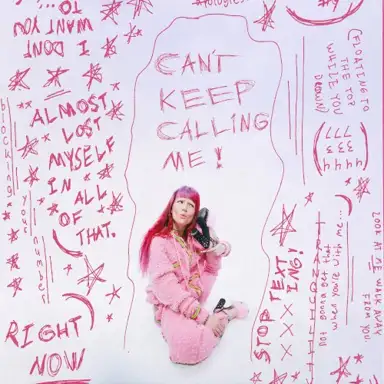 I DON'T
WANT YOU
TO...
blocking
your
number
ALMOST
LOST
MYSELF
IN ALL
OF
THAT.
RIGHT
NOW
CAN'T
KEEP
CALLING
ME!
STOP TEXT
ING!
X X X X
(FLOATING TO
THE TOP
WHILE YOU
DROWN)
You gonna get that
when you're with me...
LOOK AT ME WALK AWAY
FROM YOU